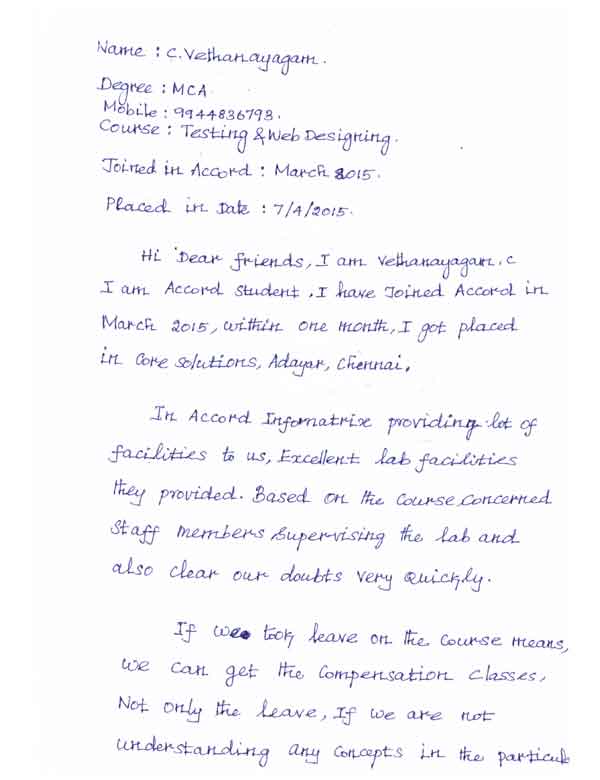 Name : C. Vethanayagam.
Degree : MCA
Mobile : 9944836793.
Course : Testing & Web Designing.
Joined in Accord : March 2015.
Placed in Date : 7/4/2015.
Hi Dear friends, I am Vethanayagam. C
I am Accord Student, I have Joined Accord in
March 2015, within one month, I got placed
in Core Solutions, Adayar, Chennai.
In Accord Infomatrix providing lot of
facilities to us, Excellent lab facilities
they provided. Based on the course concerned
Staff members Supervising the lab and
also clear our doubts very Quickly.
If we took leave on the course means,
we can get the Compensation Classes,
Not only the leave, If we are not
understanding any Concepts in the particul